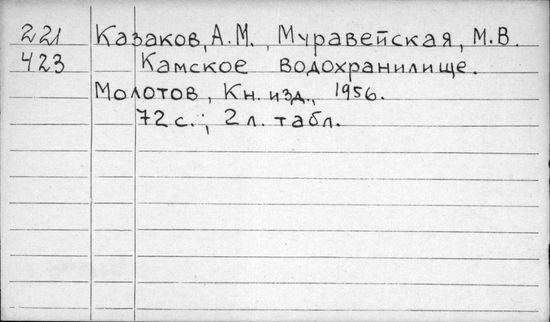 221 Казаков, А.М., Муравейская, М.В.
423 Камское водохранилище.
Молотов, Кн. изд., 1956.
72 с.; 2 л. табл.